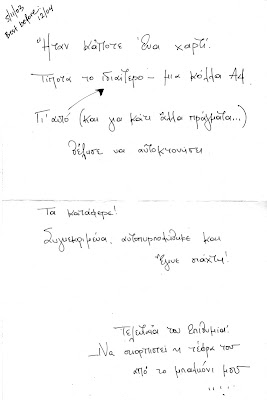 5/11/03
Best before: 12/04
Ήταν κάποτε ένα χαρτί.
Τίποτα το ιδιαίτερο - μια κόλλα Α4.
Γι' αυτό (και για κάτι άλλα πράγματα...)
θέλησε να αυτοκτονήσει
Τα κατάφερε!
Συγκεκριμένα, αυτοπυρπολήθηκε και
έγινε στάχτη!
Τελευταία του Επιθυμία:
Να σκορπιστεί η τέφρα του
από το μπαλκόνι μου
....